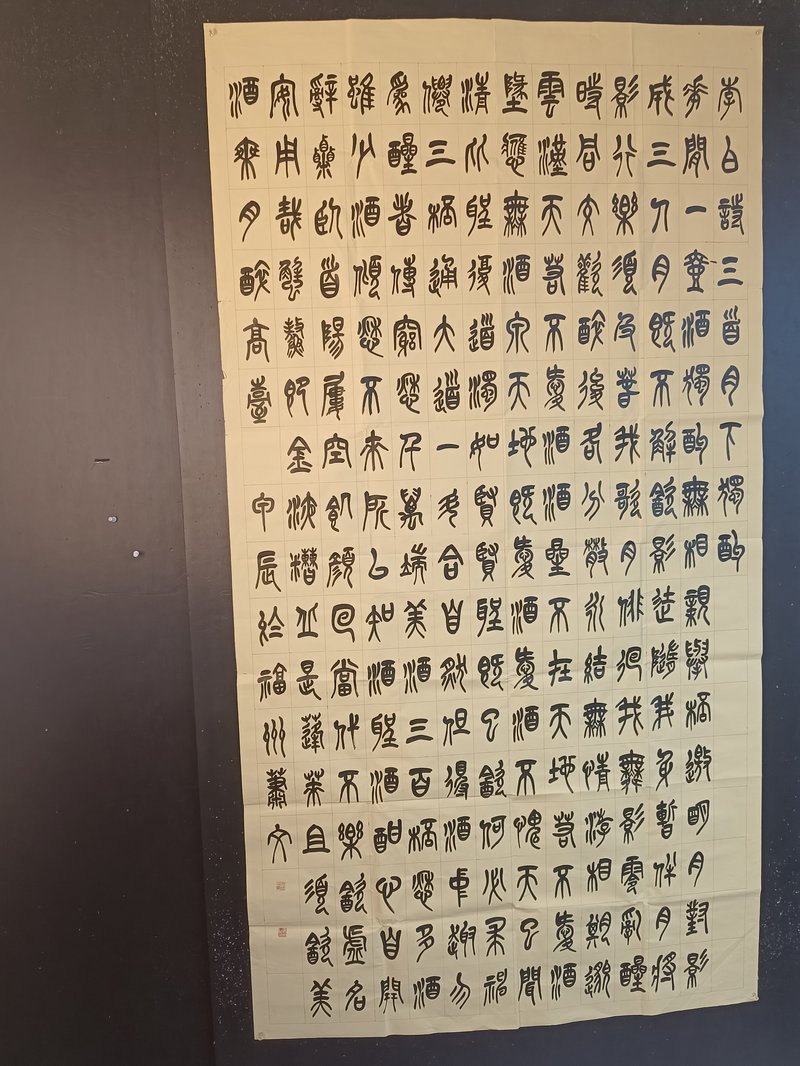 李白詩三首月下獨酌
花間一壺酒獨酌無相親舉杯邀明月對影
成三人月既不解飲影徒隨我身暫伴月將
影行樂須及春我歌月徘徊我舞影零亂醒
時同交歡醉後各分散永結無情遊相期邈
雲漢天若不愛酒酒星不在天地若不愛酒
地應無酒泉天地既愛酒愛酒不愧天已聞
清比聖復道濁如賢賢聖既已飲何必求神
僊三杯通大道一斗合自然但得酒中趣勿
為醒者傳窮愁千萬端美酒三百杯愁多酒
雖少酒傾愁不來所以知酒聖酒酣心自開
辭粟臥首陽屢空飢顏回當代不樂飲虛名
安用哉蟹螯即金液糟丘是蓬萊且須飲美
酒乘月醉高臺 甲辰於福州蕭文